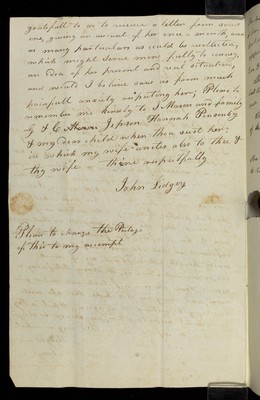 gratefull to us to receive a letter from some
one, giving an account of her once a month, and
as many particulars as could be collected,
which might serve more fully to convey
an Idea of her present and real situation,
and wou'd I believe save us from much
painfull anxiety respecting her; Please to
remember me kindly to I Morris and family
Hannah
& my dear child when thou seest her;
in which my wife unites, also to thee &
thy wife thine respectfully
John Lidgey
Please to charge the Postage
of this to my account